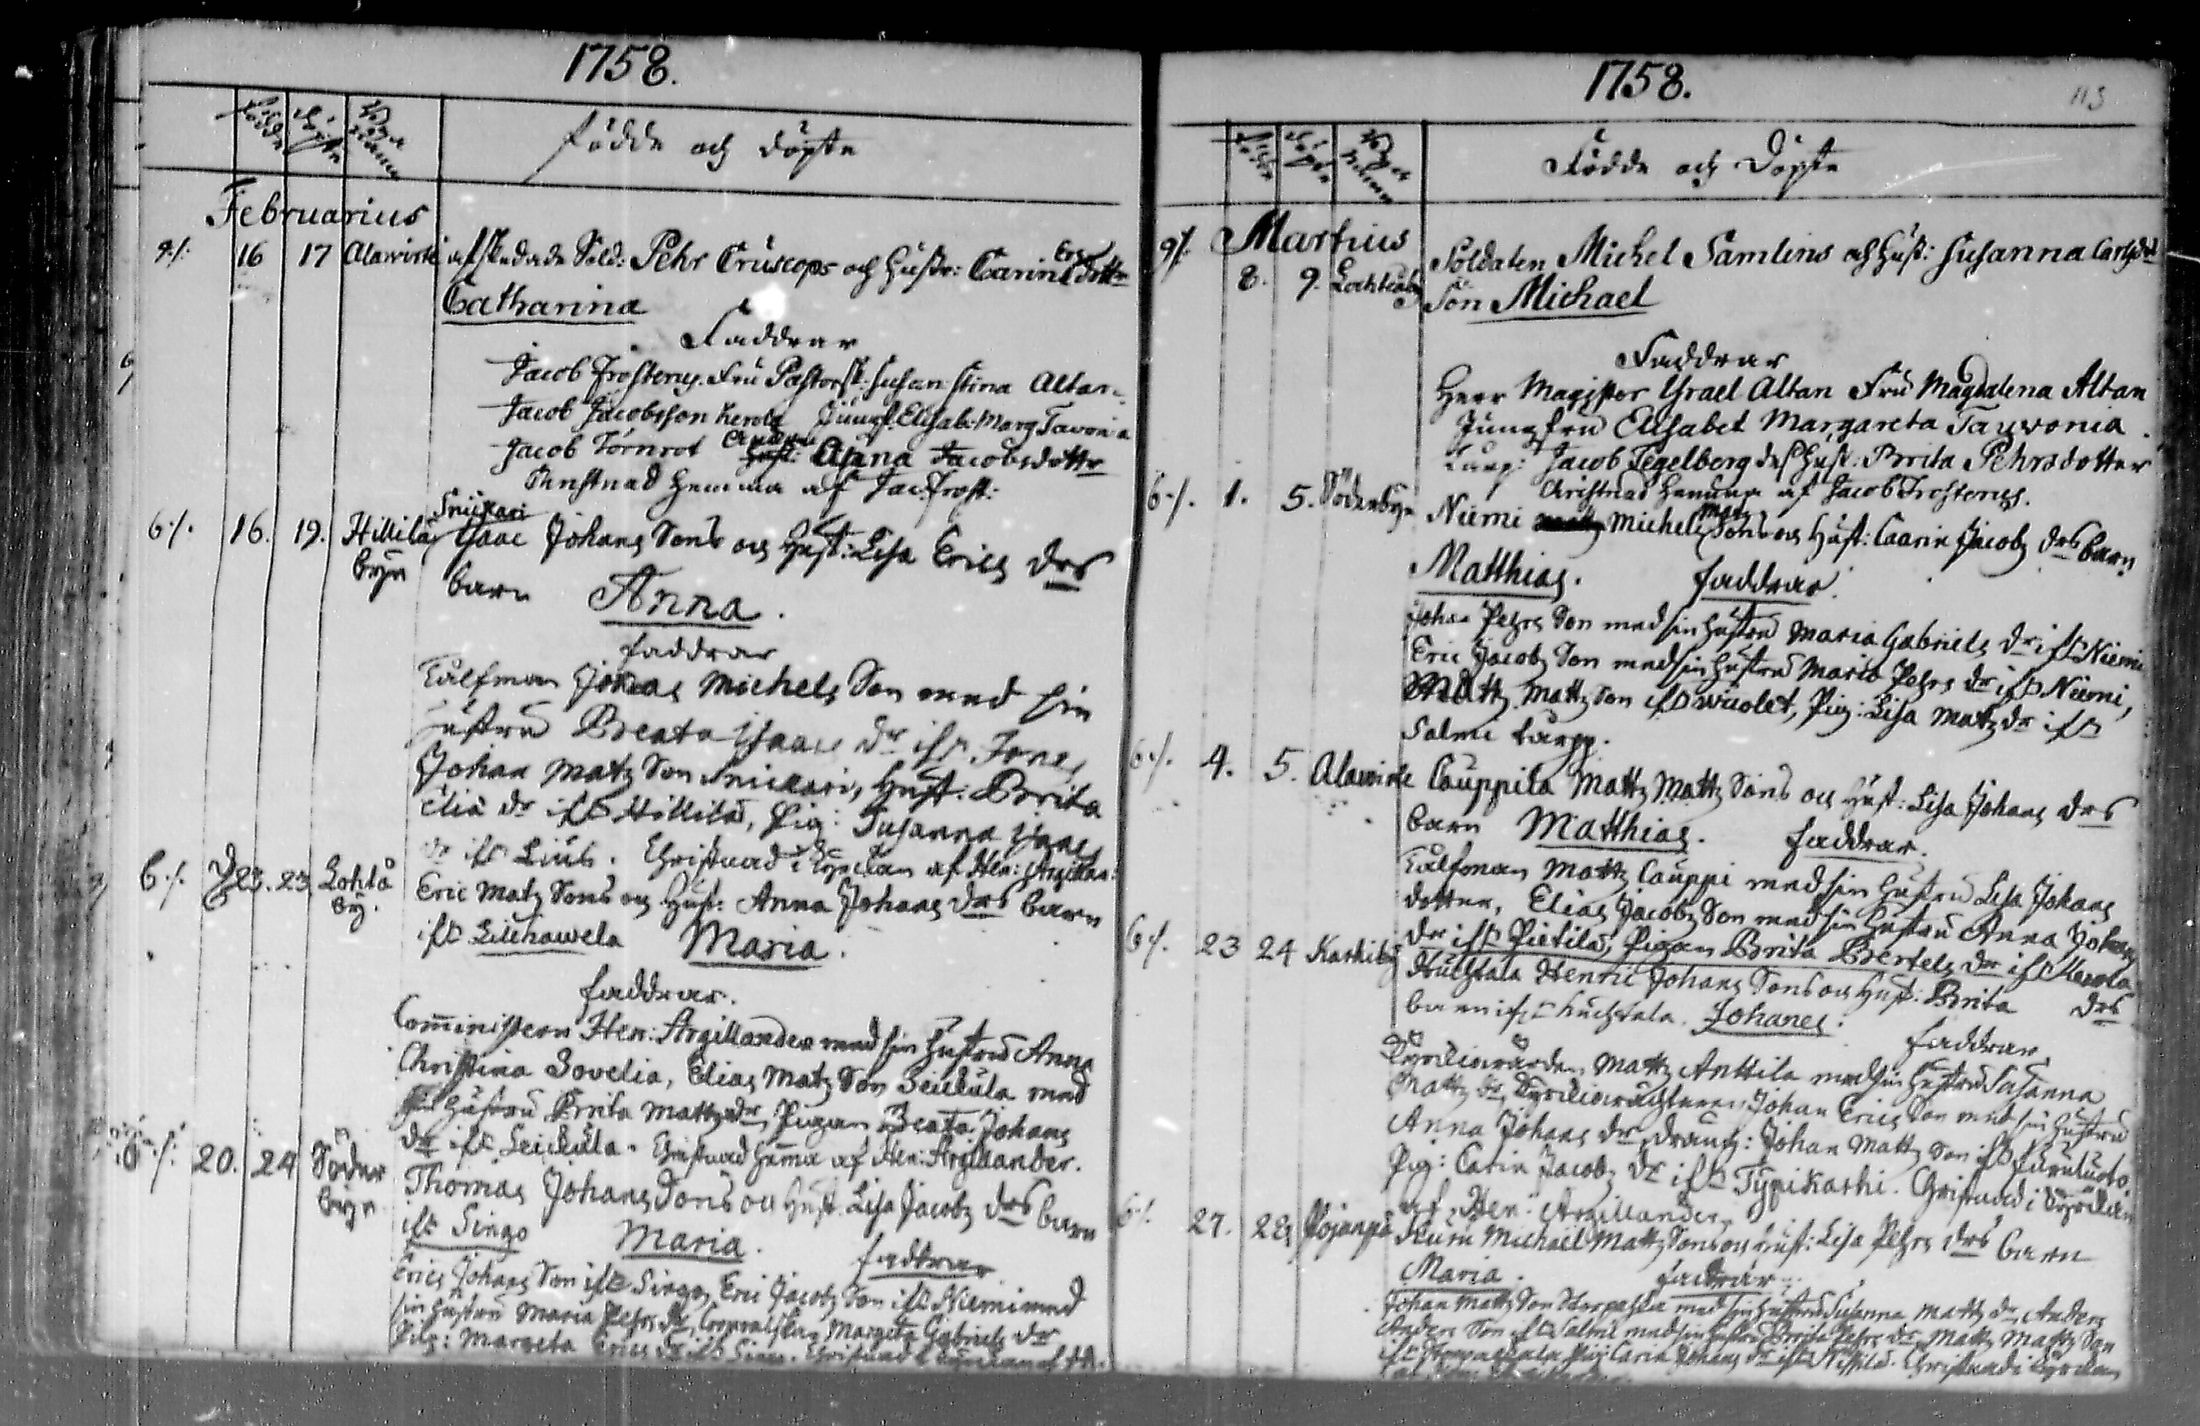 1758.
Födde Döpte Byar Namn
Födde och döpte
Februarius
9./. 16 17 Alawirte afskedade Sold: Pehr Cruscops och Hustr: Carin Ers dotter
Catharina
Faddrar
Jacob Frosterus. Fru Pastorsk: Susan Stina Altan
Jacob Jacobsson Kerola Jungf. Elisab: Marg Tawonia
Jacob Törnrot Anna Jacobsdotter
Christnad hemma af Jac: Frost:
6./. 16. 19. Hillilä Snickari Isaac Johans Sons och Hust: Lisa Erics drs
byn barn Anna.
faddrar
Tålfman Jonas Michels Son med sin
hustru Beata Isaacs dr ifrån Jones,
Johan Matz Son Snickari, Hust: Brita
Eliæ dr ifrån Hillilä, Pig: Susanna Isaacs
dr ifrån Liuts. Christnad i Kyrckan af Hen: Argillan:
6./. 23. 23 Lohtå Eric Matz Sons och Hust: Anna Johans drs barn
by. ifrån Liuhawela Maria.
faddrar.
Comministern Hen: Argillander med sin hustru Anna
Christina Sovelia, Elias Matz Son Leickula med
sin hustru Brita Mattz dr, Pigan Beata Johans
dr ifrån Leickula. Christnad hemma af Hen: Argillander.
6./. 20. 24 Söder Thomas Johans Sons och Hust. Lisa Jacobs drs barn
byn. ifrån Singo Maria. faddrar
Erics Johans Son ifrån Singo, Eric Jacobs Son ifrån Niemi med
sin hustru Maria Pehrs dr, Margeta Gabriels dr
Pig: Margeta Erics dr ifrån Singo. Christnad i Kyrckan af
1758.
113
Födde Döpte Byar Namn
Födde och Döpte
Martius
9./. 8. 9. Lochteåby Soldaten Michel Samlins och Hust: Susanna Carlsdr
Son Michael
Faddrar
Herr Magister Israel Altan Fru Magdalena Altan
Jungfru Elisabet Margareta Tawonia.
Jacob Tegelberg des Hust: Brita Pehrsdotter
Christnad hemma af Jacob Frosterus.
6./. 1. 5. Söderbyn Niemi Michels Matz Sons och Hust: Caarin Jacobs drs barn
Matthias. faddrar.
Johan Pehrs Son med sin hustru Maria Gabriels dr ifrån Niemi
Eric Jacobs Son med sin hustru Maria Pehrs dr ifrån Niemi,
Mattz Mattz Son ifrån Wiolet, Pig: Lisa Matz dr ifrån
Salmi
6./. 4. 5. Alawirte Cauppila Mattz Mattz Sons och Hust: Lisa Johans drs
barn Matthias. faddrar.
Tålfman Mattz Cauppi med sin hustru Lisa Johans
dotter, Elias Jacobs Son med sin hustru Anna Johans
dr ifrån Pietilä, Pigan Brita Bertels dr ifrån Kerola
6./. 23 24 Karhiby Huchtala Henric Johans Sons och Hust: Brita drs
barn ifrån Huchtala. Johanes. faddrar.
Kyrckiowärden Mattz Anttila med sin hustru Susanna
Mattz dr, Kyrckiowächtaren Johan Erics Son med sin hustru
Anna Johans dr, dräng: Johan Mattz Son ifrån
Pig: Carin Jacobs dr ifrån Typikarhi. Christnad i Kyrckan
af Hen: Argillander.
6./. 27. 28 Pojanpä Kuru Michael Mattz Sons och Hust: Lisa Pehrs drs barn
Maria. faddrar.
Johan Mattz Son med sin hustru Susanna Mattz dr, Anders
Anders Son ifrån Salmi med sin hustru Brita Pehrs dr, Mattz Mattz Son
Pig: Carin Johans dr ifrån Christnad i Kyrckan